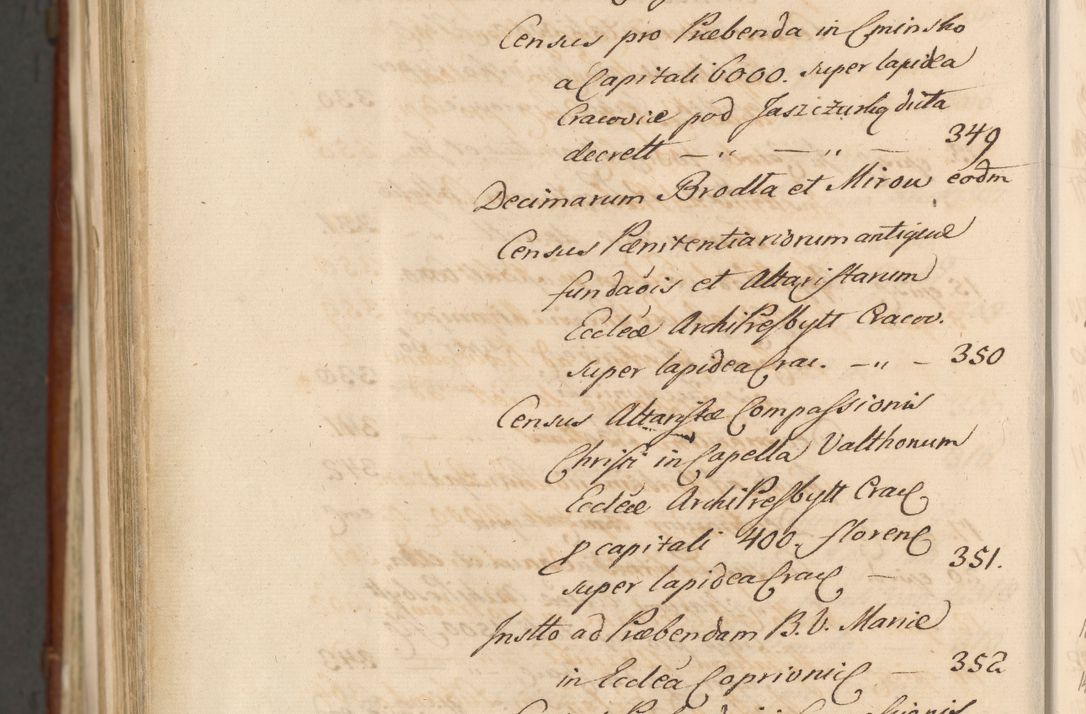 Census pro Præbenda in Cminsko
a Capitali 6000. super lapidea
Cracoviæ pod Jaszczurką dicta
decrett — " — " — 349
Decimarum Brodła et Mirow eodm
Census Pænitentiariorum antiquæ
fundaóis et Altaristarum
Eccléæ ArchiPresbytt Cracov.
super lapidea Crac. — " — 350
Census Altaristæ Compassionis
Christi in Capella Valthonum
Eccléæ ArchiPresbytt Crac
p capitali 400. floren
super lapidea Crac — 351.
Instto ad Præbendam B. V. Mariæ
in Eccléa Coprivnic — 352